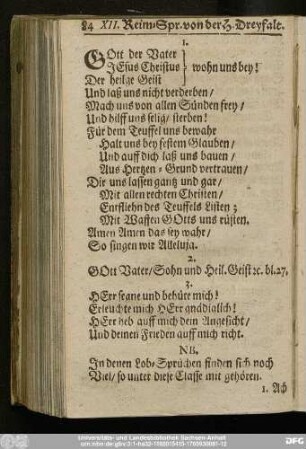 84 XII. Reim-Spr. von der H. Dreyfalt.
1.
GOtt der Vater
JEsus Christus } wohn uns bey!
Der heilge Geist
Und laß uns nicht verderben/
Mach uns von allen Sünden frey/
Und hilff uns selig/ sterben!
Für dem Teuffel uns bewahr
Halt uns bey festem Glauben/
Und auff dich laß uns bauen/
Aus Hertzen-Grund vertrauen/
Dir uns lassen gantz und gar/
Mit allen rechten Christen/
Entfliehn des Teuffels Listen;
Mit Waffen GOtts uns rüsten.
Amen Amen das sey wahr/
So singen wir Alleluja.
2.
GOtt Vater/ Sohn und Heil. Geist ꝛc. bl. 27.
3.
HErr segne und behüte mich!
Erleuchte mich HErr gnädiglich!
HErr heb auff mich dein Angesicht/
Und deinen Frieden auff mich richt.
NB.
In denen Lob-Sprüchen finden sich noch
Viel/ so unter diese Classe mit gehören.
1. Ach
Universitäts- und Landesbibliothek Sachsen-Anhalt